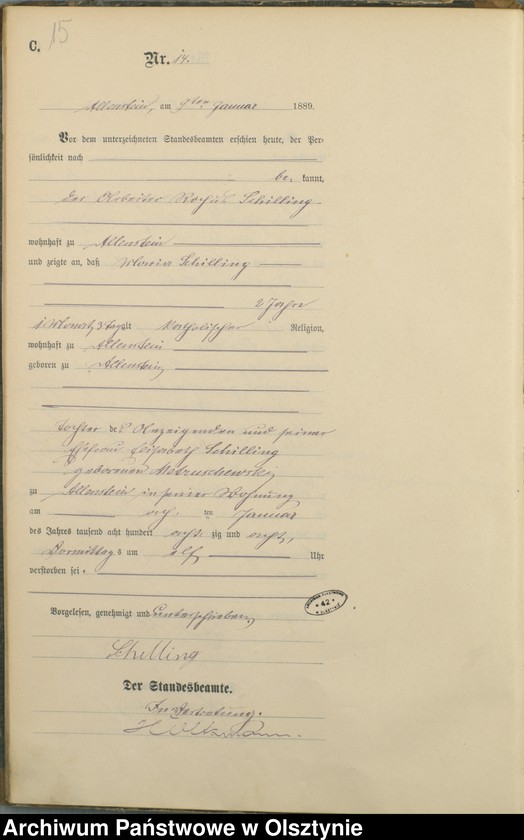 C.
15
Nr. 14.
Allenstein, am 9ten Januar 1889.
Vor dem unterzeichneten Standesbeamten erschien heute, der Per-
sönlichkeit nach
be kannt,
der Arbeiter Schilling
wohnhaft zu Allenstein
und zeigte an, daß Maria Schilling
2 Jahre
1 Monat 3 Tage alt katholischer Religion,
wohnhaft zu Allenstein
geboren zu Allenstein,
Tochter des Anzeigenden und seiner
Ehefrau Elisabeth Schilling
geborenen
zu Allenstein in seiner Wohnung
am acht ten Januar
des Jahres tausend acht hundert acht zig und
Vormittags um elf Uhr
verstorben sei.
Vorgelesen, genehmigt und unterschrieben,
Schilling
Der Standesbeamte.
In Vertretung.
Archiwum Państwowe w Olsztynie